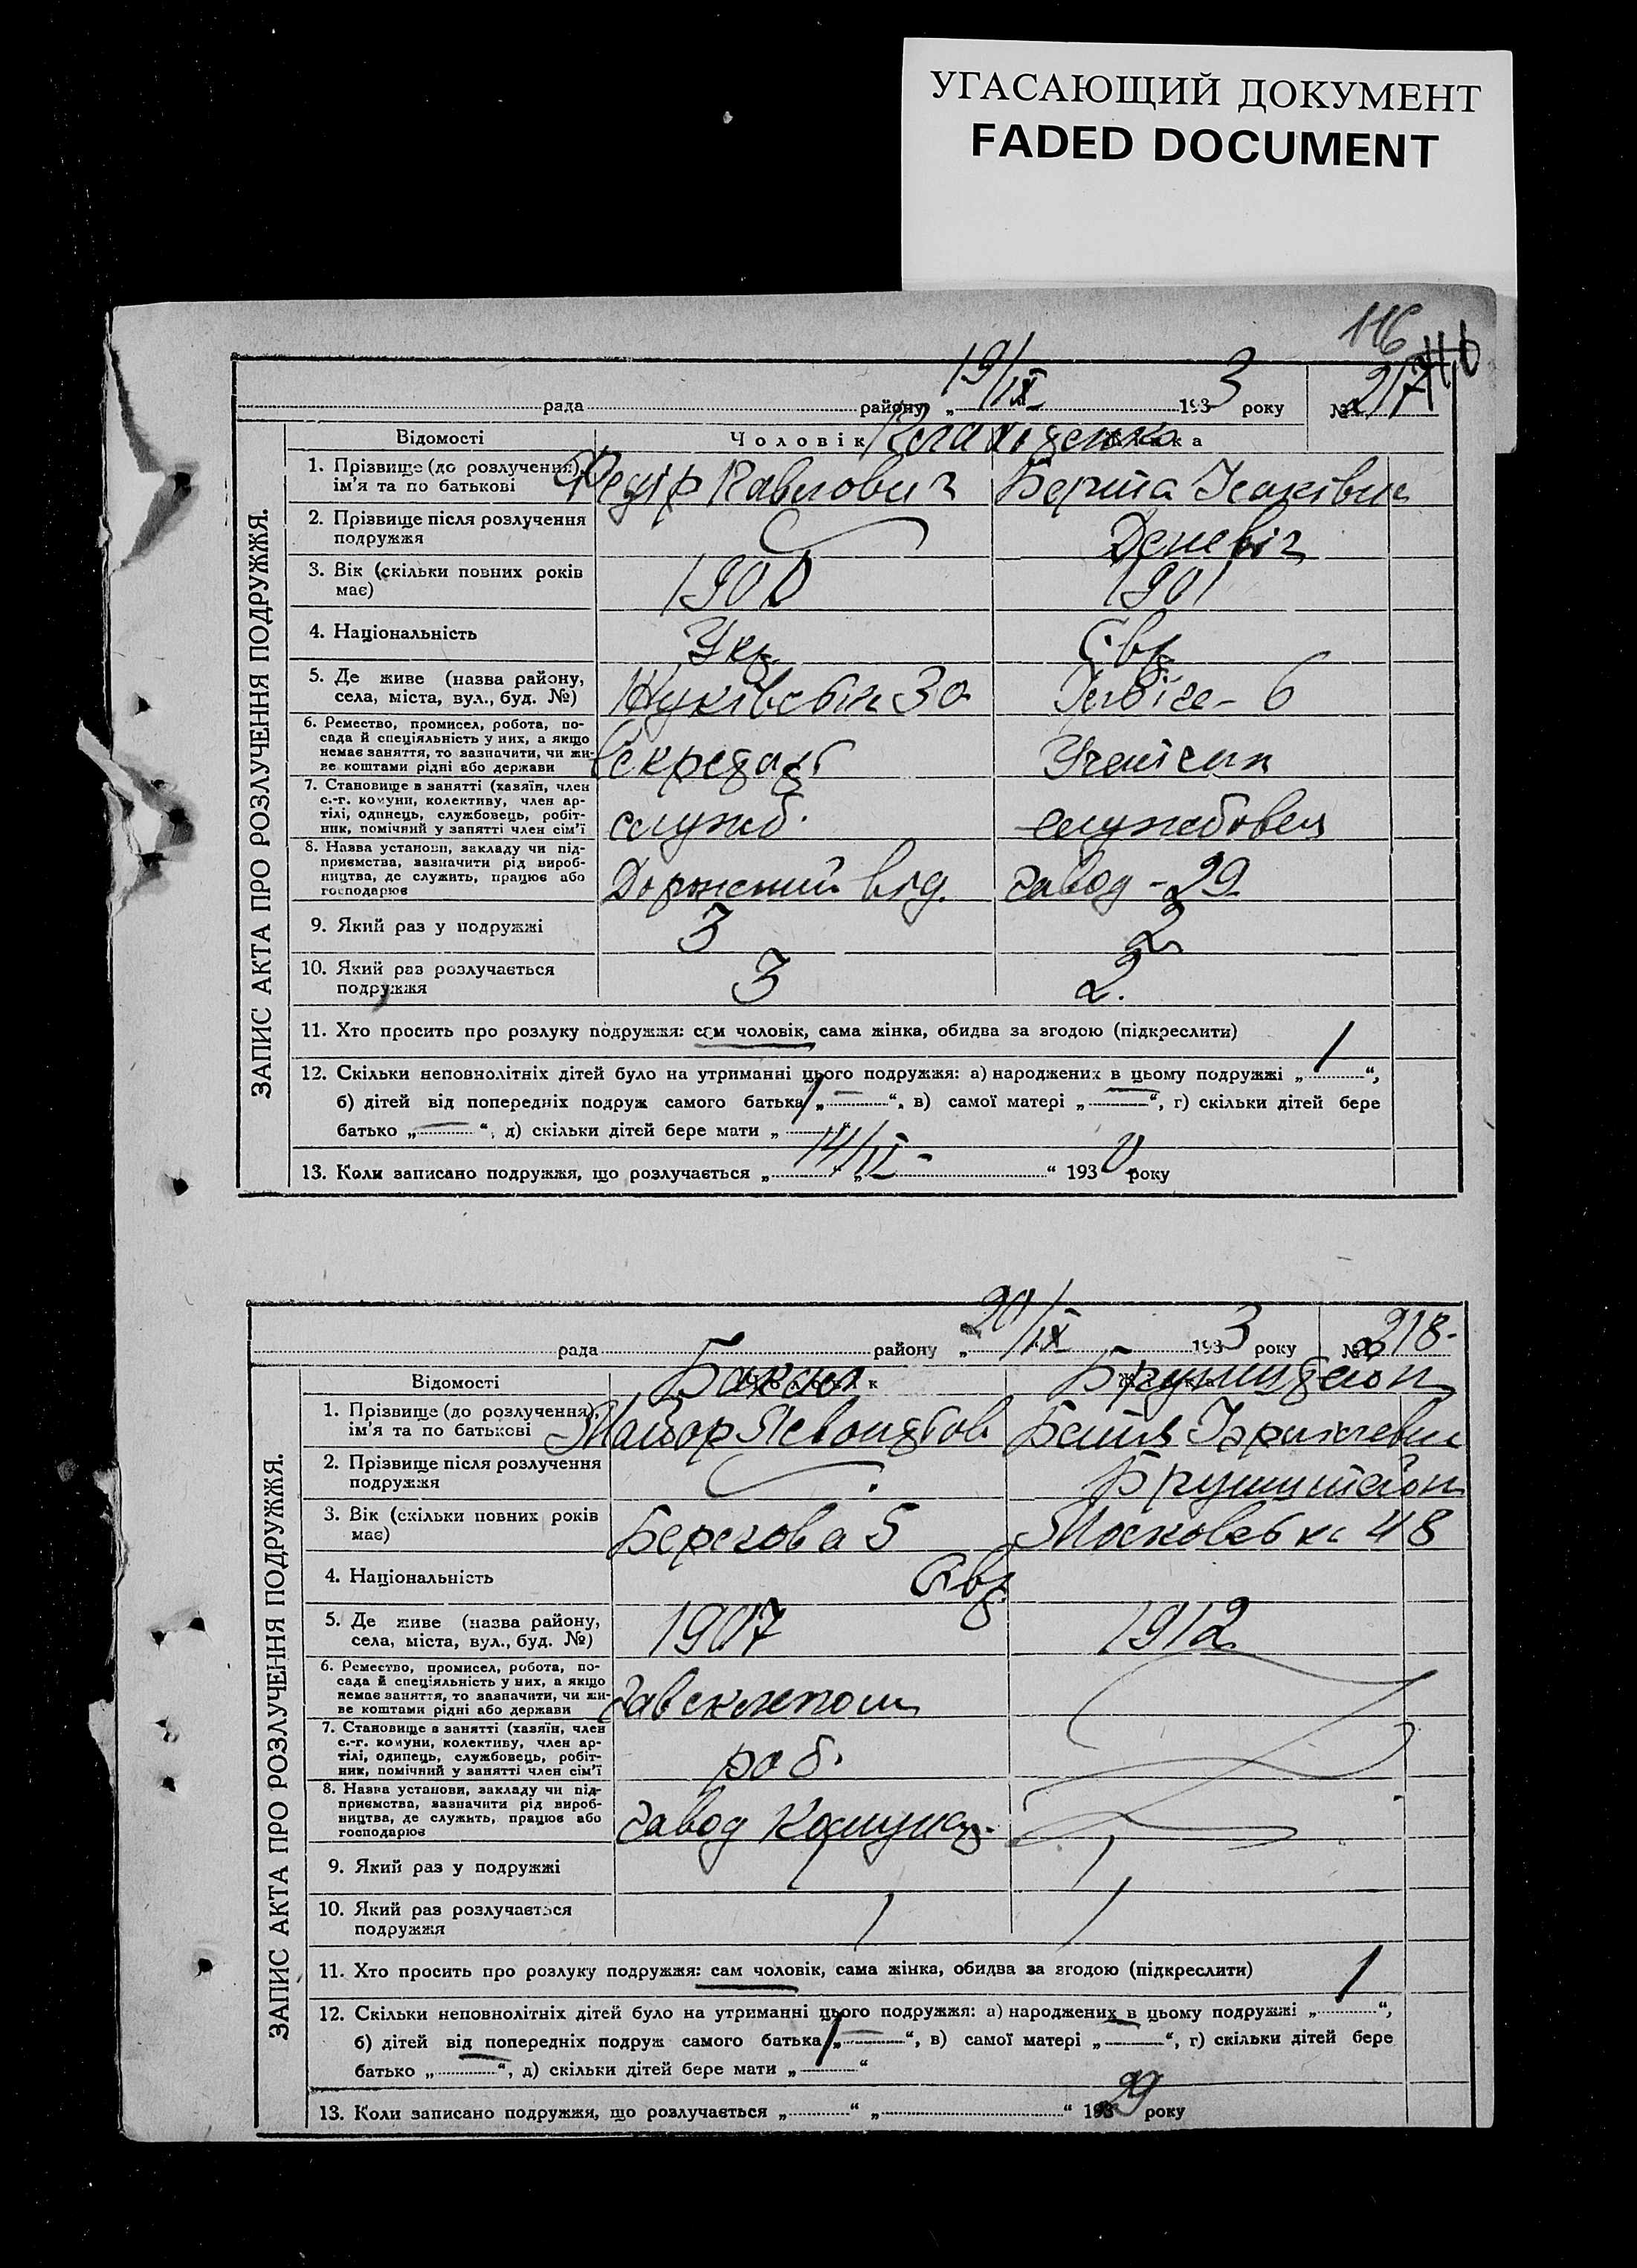 УГАСАЮЩИЙ ДОКУМЕНТ
FADED DOCUMENT
116
ЗАПИС АКТА ПРО РОЗЛУЧЕННЯ ПОДРУЖЖЯ.
рада района „ 19/IX 1933 року № 217
Відомості Чоловік
1. Прізвище (до розлучення), ім'я та по батькові Федір Павлович Берта Ісаківн
2. Прізвище після розлучення подружжя
3. Вік (скільки повних років має) 1900 1901
4. Національність Укр. Євр
5. Де живе (назва району, села, міста, вул., буд. №) 30 6
6. Ремество, промисел, робота, по-
сада й спеціяльність у них, а якщо
немає заняття, то зазначити, чи жи-
ве коштами рідні або держави Секретарь
7. Становище в занятті (хазяїн, член
с.-г. комуни, колективу, член ар-
тілі, одинець, службовець, робіт-
ник, помічний у занятті член сім'ї служб. службовець
8. Назва установи, закладу чи під-
приємства, зазначити рід вироб-
ництва, де служить, працює або
господарює від. завод - 29
9. Який раз у подружжі 3 2
10. Який раз розлучається подружжя 3 2.
11. Хто просить про розлуку подружжя: сам чоловік, сама жінка, обидва за згодою (підкреслити)
12. Скільки неповнолітніх дітей було на утриманні цього подружжя: а) народжених в цьому подружжі „ 1 “,
б) дітей від попередніх подруж самого батька „ — “, в) самої матері „ — “, г) скільки дітей бере
батько „ — “, д) скільки дітей бере мати „ 1 “
13. Коли записано подружжя, що розлучається „ 14/ “ 1930 року
ЗАПИС АКТА ПРО РОЗЛУЧЕННЯ ПОДРУЖЖЯ.
рада району „ 20/IX 1933 року № 218-
Відомості Бруmштейн
1. Прізвище (до розлучення), ім'я та по батькові
2. Прізвище після розлучення подружжя Брумштейн
3. Вік (скільки повних років має) Берегова 5 Московська 48
4. Національність Євр
5. Де живе (назва району, села, міста, вул., буд. №) 1907 1912
6. Ремество, промисел, робота, по-
сада й спеціяльність у них, а якщо
немає заняття, то зазначити, чи жи-
ве коштами рідні або держави завскл
7. Становище в занятті (хазяїн, член
с.-г. комуни, колективу, член ар-
тілі, одинець, службовець, робіт-
ник, помічний у занятті член сім'ї роб.
8. Назва установи, закладу чи під-
приємства, зазначити рід вироб-
ництва, де служить, працює або
господарює завод Комунар.
9. Який раз у подружжі 1 1
10. Який раз розлучається подружжя 1 1
11. Хто просить про розлуку подружжя: сам чоловік, сама жінка, обидва за згодою (підкреслити)
12. Скільки неповнолітніх дітей було на утриманні цього подружжя: а) народжених в цьому подружжі „ 1 “,
б) дітей від попередніх подруж самого батька „ — “, в) самої матері „ — “, г) скільки дітей бере
батько „ — “, д) скільки дітей бере мати „ 1 “
13. Коли записано подружжя, що розлучається „ “ „ “ 1929 року